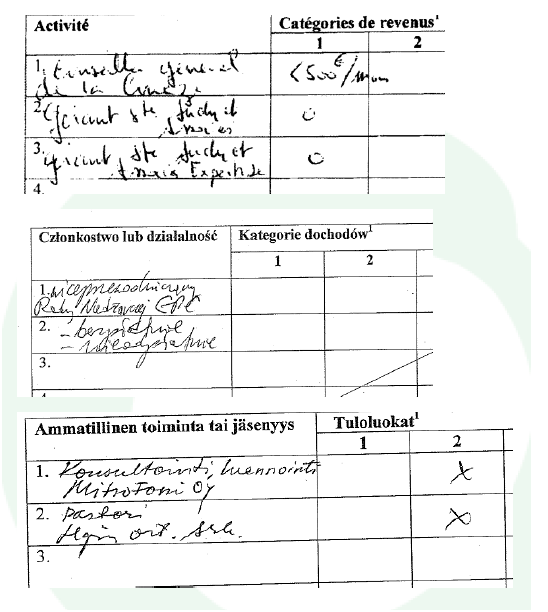 Activité
Catégories de revenus¹
1
2
1. Conseiller général
de la Corrèze
<500€/mois
2. gérant sté
0
3. gérant sté
Expertise
0
4.
Członkostwo lub działalność
Kategorie dochodów¹
1
2
1. wiceprzewodniczący
Rady Nadzorczej
2. - bezpłatne
3.
Ammatillinen toiminta tai jäsenyys
Tuloluokat¹
1
2
1. Konsultointi, luennointi
Mitrofoni Oy
x
2. Pastori
Hgin ort. srk.
x
3.